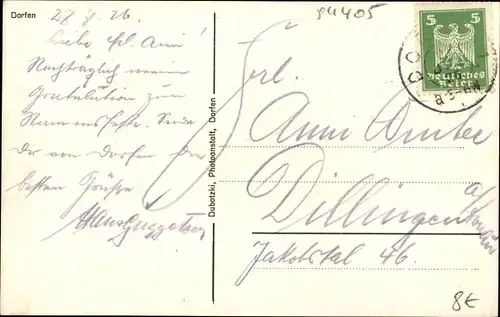 Dorfen
28. 7. 26.
Liebe Frl. Anni!
Nachträglich meine
Gratulation zum
Namensfeste. Sende
Dir von Dorfen die
besten Grüße
Hans
Dubotzki, Photoanstalt, Dorfen
94405
5 5
Deutsches
Reich
Frl.
Anni
Dillingen
a/Donau
Jakobstal 46.
8€